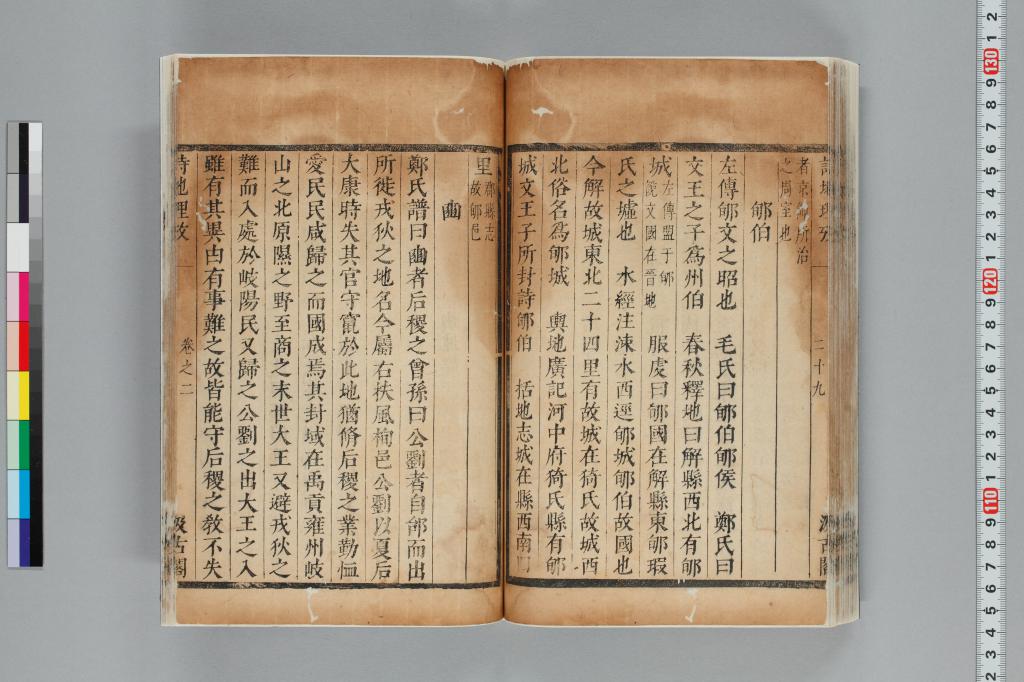 詩地理攷
二十九
汲古閣
者京師所治
之周室也
郇伯
左傳郇文之昭也　毛氏曰郇伯郇侯　鄭氏曰
文王之子爲州伯　春秋釋地曰解縣西北有郇
城左傳盟于郇
說文國在晉地　服虔曰郇國在解縣東郇瑕
氏之墟也　水經注涑水西逕郇城郇伯故國也
今解故城東北二十四里有故城在猗氏故城西
北俗名爲郇城　輿地廣記河中府猗氏縣有郇
城文王子所封詩郇伯　括地志城在縣西南
里郡縣志
故郇邑
豳
鄭氏譜曰豳者后稷之曾孫曰公劉者自邰而出
所徙戎狄之地名今屬右扶風栒邑公劉以夏后
大康時失其官守竄於此地猶脩后稷之業勤恤
愛民民咸歸之而國成焉其封域在禹貢雍州岐
山之北原隰之野至商之末世大王又避戎狄之
難而入處於岐陽民又歸之公劉之出大王之入
雖有其異由有事難之故皆能守后稷之敎不失
詩地理攷
卷之二
汲古閣